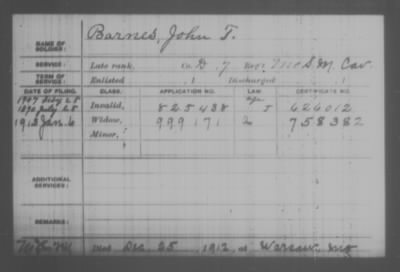 NAME OF SOLDIER: Barnes, John T.
SERVICE: Late rank, Co. D, 7 Reg't Mo S. M. Cav.
TERM OF SERVICE: Enlisted , 1 Discharged , 1
DATE OF FILING. CLASS. APPLICATION NO. LAW. CERTIFICATE NO.
1907 Feby 25
1890 July 25 Invalid, 825438 J 626012
1913 Jan. 6 Widow, 999171 758382
Minor,
ADDITIONAL SERVICES:
REMARKS:
Died Dec 25 1912, at Warsaw Mo